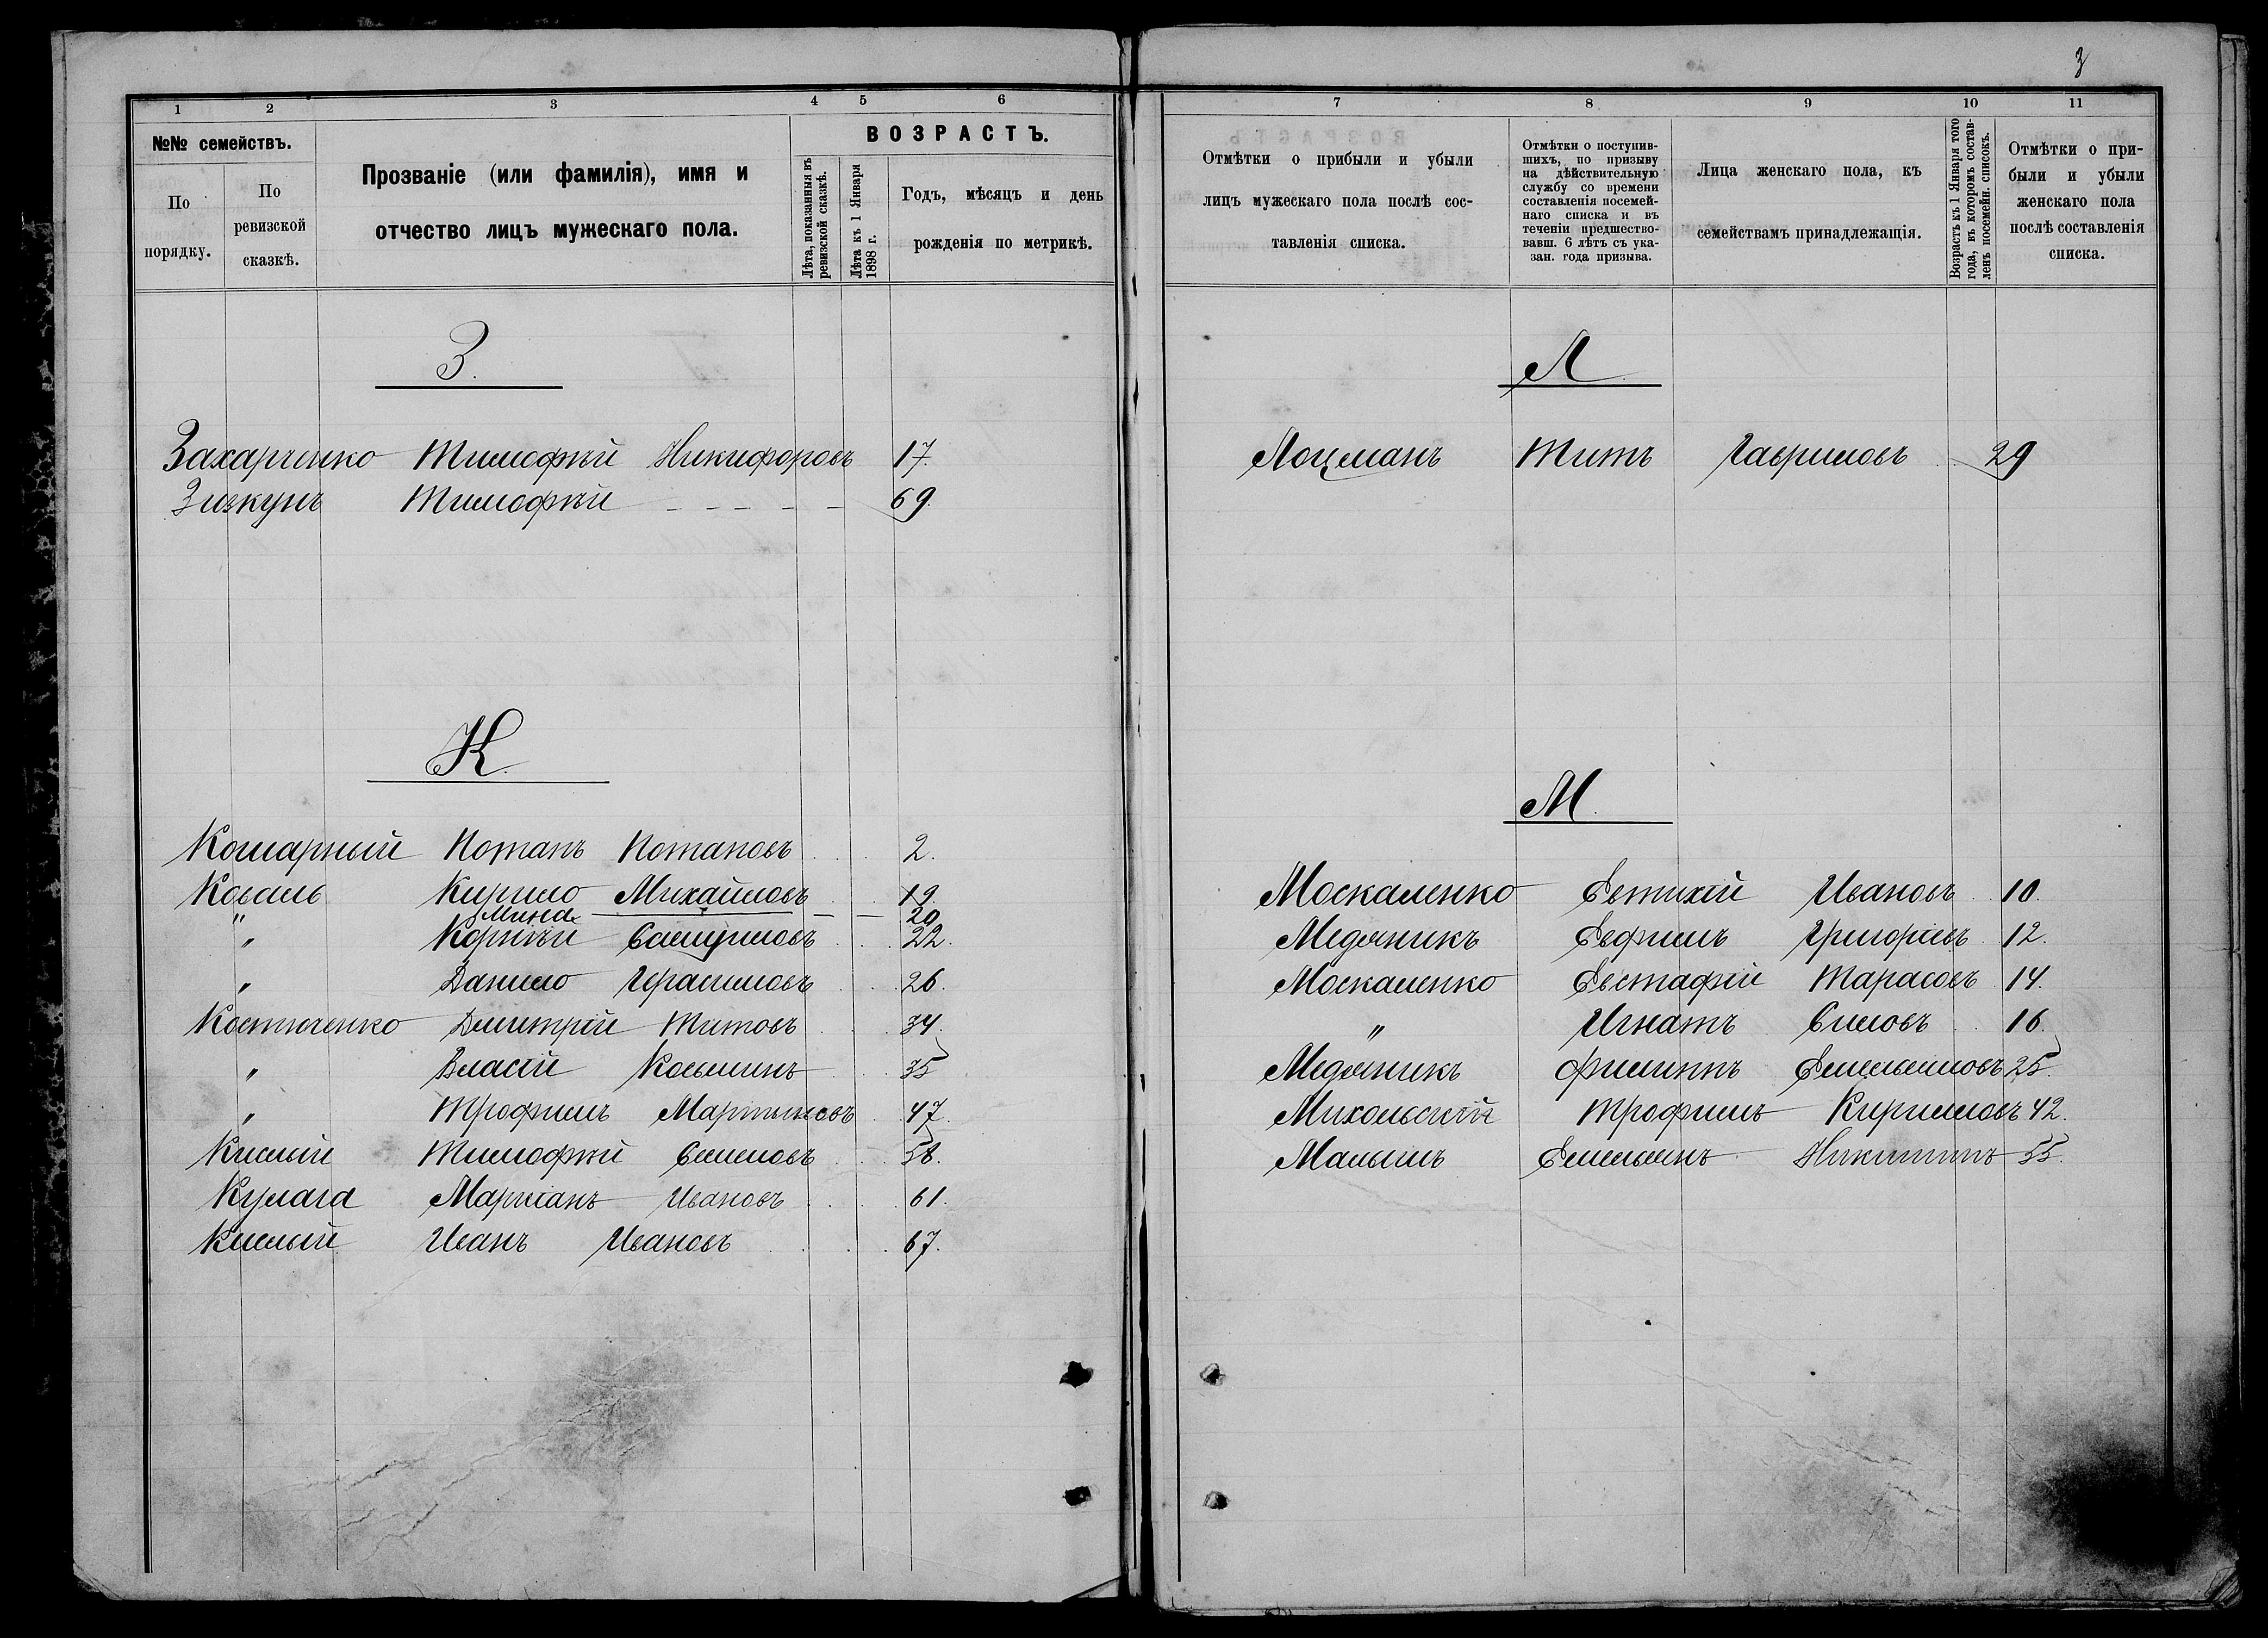 1 2 3 4 5 6
№№ семействъ.
По порядку.
По ревизской сказкѣ.
Прозваніе (или фамилія), имя и
отчество лицъ мужескаго пола.
ВОЗРАСТЪ.
Лѣта, показанныя въ ревизской сказкѣ.
Лѣта къ 1 Января 1898 г.
Годъ, мѣсяцъ и день
рожденія по метрикѣ.
З.
Захарченко Тимофѣй Никифоровъ 17.
Зизкунъ Тимофѣй – – – – – 69.
К.
Комарный Потапъ Потаповъ 2.
Коваль Кирило Михайловъ 19.
" Мина — — — 20
" Корнѣй Самуиловъ 22.
" Данило Герасимовъ 26.
Костюченко Дмитрій Титовъ 34.
" Власій Косьминъ 35
" Трофимъ Мартыновъ 47.
Кислый Тимофѣй Семеновъ 58.
Кулага Маркіанъ Ивановъ 61.
Кислый Иванъ Ивановъ 67.
3
7 8 9 10 11
Отмѣтки о прибыли и убыли
лицъ мужескаго пола послѣ сос-
тавленія списка.
Отмѣтки о поступив-
шихъ, по призыву
на дѣйствительную
службу со времени
составленія посемей-
наго списка и въ
теченіи предшество-
вавш. 6 лѣтъ съ ука-
зан. года призыва.
Лица женскаго пола, къ
семействамъ принадлежащія.
Возрастъ къ 1 Января того
года, въ которомъ состав-
ленъ посемейн. списокъ.
Отмѣтки о при-
были и убыли
женскаго пола
послѣ составленія
списка.
Л.
Лоцманъ Титъ Гавриловъ 29
М.
Москаленко Евтихій Ивановъ 10.
Медяникъ Евфимъ Григорьевъ 12.
Москаленко Евстафій Тарасовъ 14.
" Игнатъ Силовъ 16.
Медяникъ Филиппъ Емельяновъ 25.
Михольскій Трофимъ Кирилловъ 42.
Малышъ Емельянъ Никитинъ 55.